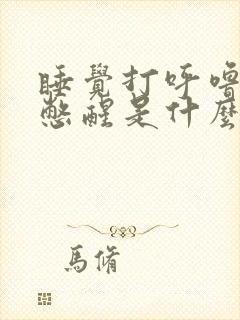 睡覺打呼嚕
憋醒是什麼
馬脩